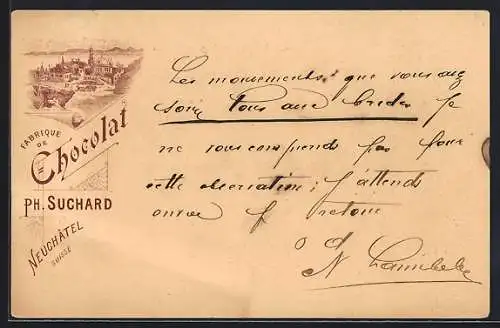 FABRIQUE
DE
Chocolat
PH. SUCHARD
NEUCHÂTEL
SUISSE
Les mouvements que vous
tous aux brides je
ne vous comprends pas pour
cette observation; j'attends
retour